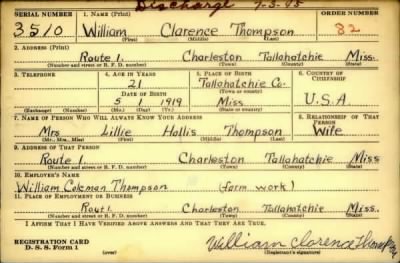 Discharge 9-3-45
SERIAL NUMBER 1. NAME (Print) ORDER NUMBER
3510 William Clarence Thompson 82
(First) (Middle) (Last)
2. ADDRESS (Print)
Route 1. Charleston Tallahatchie Miss.
(Number and street or R. F. D. number) (Town) (County) (State)
3. TELEPHONE 4. AGE IN YEARS 5. PLACE OF BIRTH 6. COUNTRY OF CITIZENSHIP
21 Tallahatchie Co.
DATE OF BIRTH (Town or county)
5 1 1919 Miss U.S.A.
(Exchange) (Number) (Mo.) (Day) (Yr.) (State or country)
7. NAME OF PERSON WHO WILL ALWAYS KNOW YOUR ADDRESS 8. RELATIONSHIP OF THAT PERSON
Mrs Lillie Hollis Thompson Wife
(Mr., Mrs., Miss) (First) (Middle) (Last)
9. ADDRESS OF THAT PERSON
Route 1. Charleston Tallahatchie Miss
(Number and street or R. F. D. number) (Town) (County) (State)
10. EMPLOYER'S NAME
William Coleman Thompson (farm work)
11. PLACE OF EMPLOYMENT OR BUSINESS
Rout 1. Charleston Tallahatchie Miss.
(Number and street or R. F. D. number) (Town) (County) (State)
I AFFIRM THAT I HAVE VERIFIED ABOVE ANSWERS AND THAT THEY ARE TRUE.
REGISTRATION CARD
D. S. S. Form 1 (over) William Clarence Thompson
(Registrant's signature)